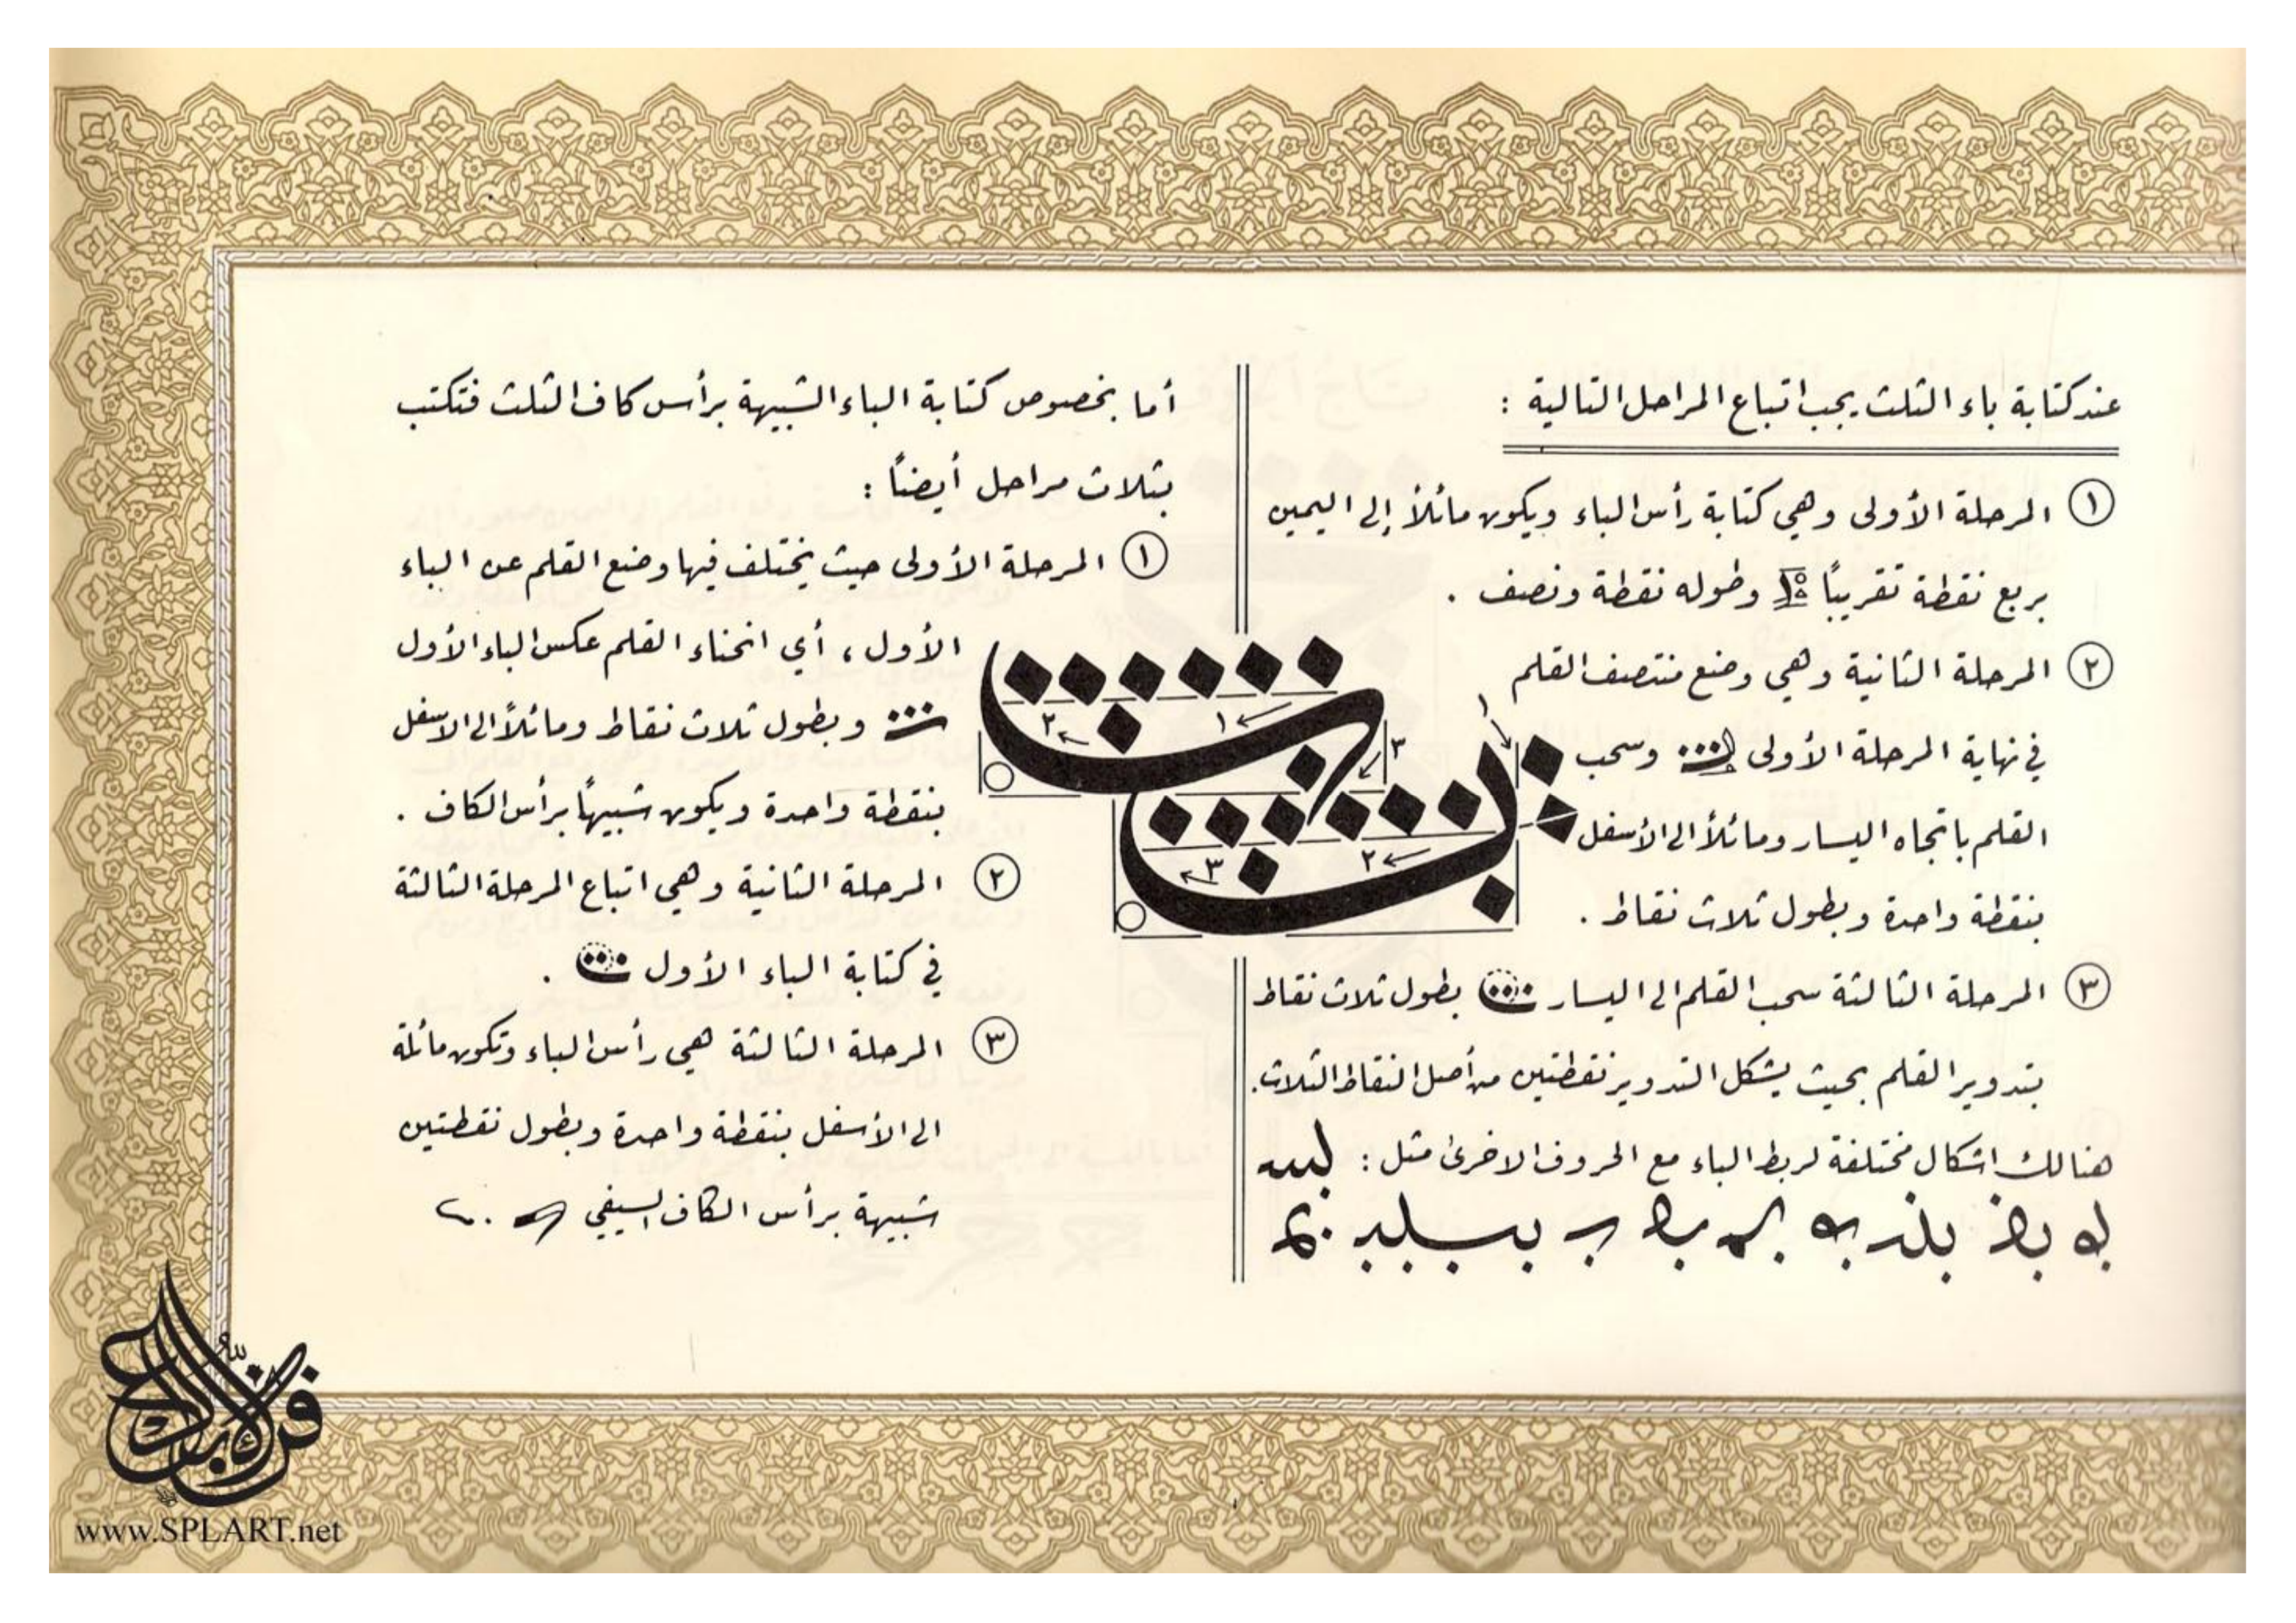 عند كتابة باء الثلث يجب اتباع المراحل التالية :
١ المرحلة الأولى وهي كتابة رأس الباء ويكون مائلاً إلى اليمين
بربع نقطة تقريباً وطوله نقطة ونصف .
٢ المرحلة الثانية وهي وضع منتصف القلم
في نهاية المرحلة الأولى وسحب
القلم باتجاه اليسار ومائلاً الى الأسفل
بنقطة واحدة وبطول ثلاث نقاط .
٣ المرحلة الثالثة سحب القلم الى اليسار بطول ثلاث نقاط
بتدوير القلم بحيث يشكل التدوير نقطتين من أصل النقاط الثلاث .
هنالك اشكال مختلفة لربط الباء مع الحروف الاخرى مثل :
أما بخصوص كتابة الباء الشبيهة برأس كاف الثلث فتكتب
بثلاث مراحل أيضاً :
١ المرحلة الأولى حيث يختلف فيها وضع القلم عن الباء
الأول ، أي انحناء القلم عكس الباء الأول
وبطول ثلاث نقاط ومائلاً الى الاسفل
بنقطة واحدة ويكون شبيهاً برأس الكاف .
٢ المرحلة الثانية وهي اتباع المرحلة الثالثة
في كتابة الباء الأول .
٣ المرحلة الثالثة هي رأس الباء وتكون مائلة
الى الأسفل بنقطة واحدة وبطول نقطتين
شبيهة برأس الكاف السيفي
١
٢
٣
١
٢
٣
www.SPLART.net